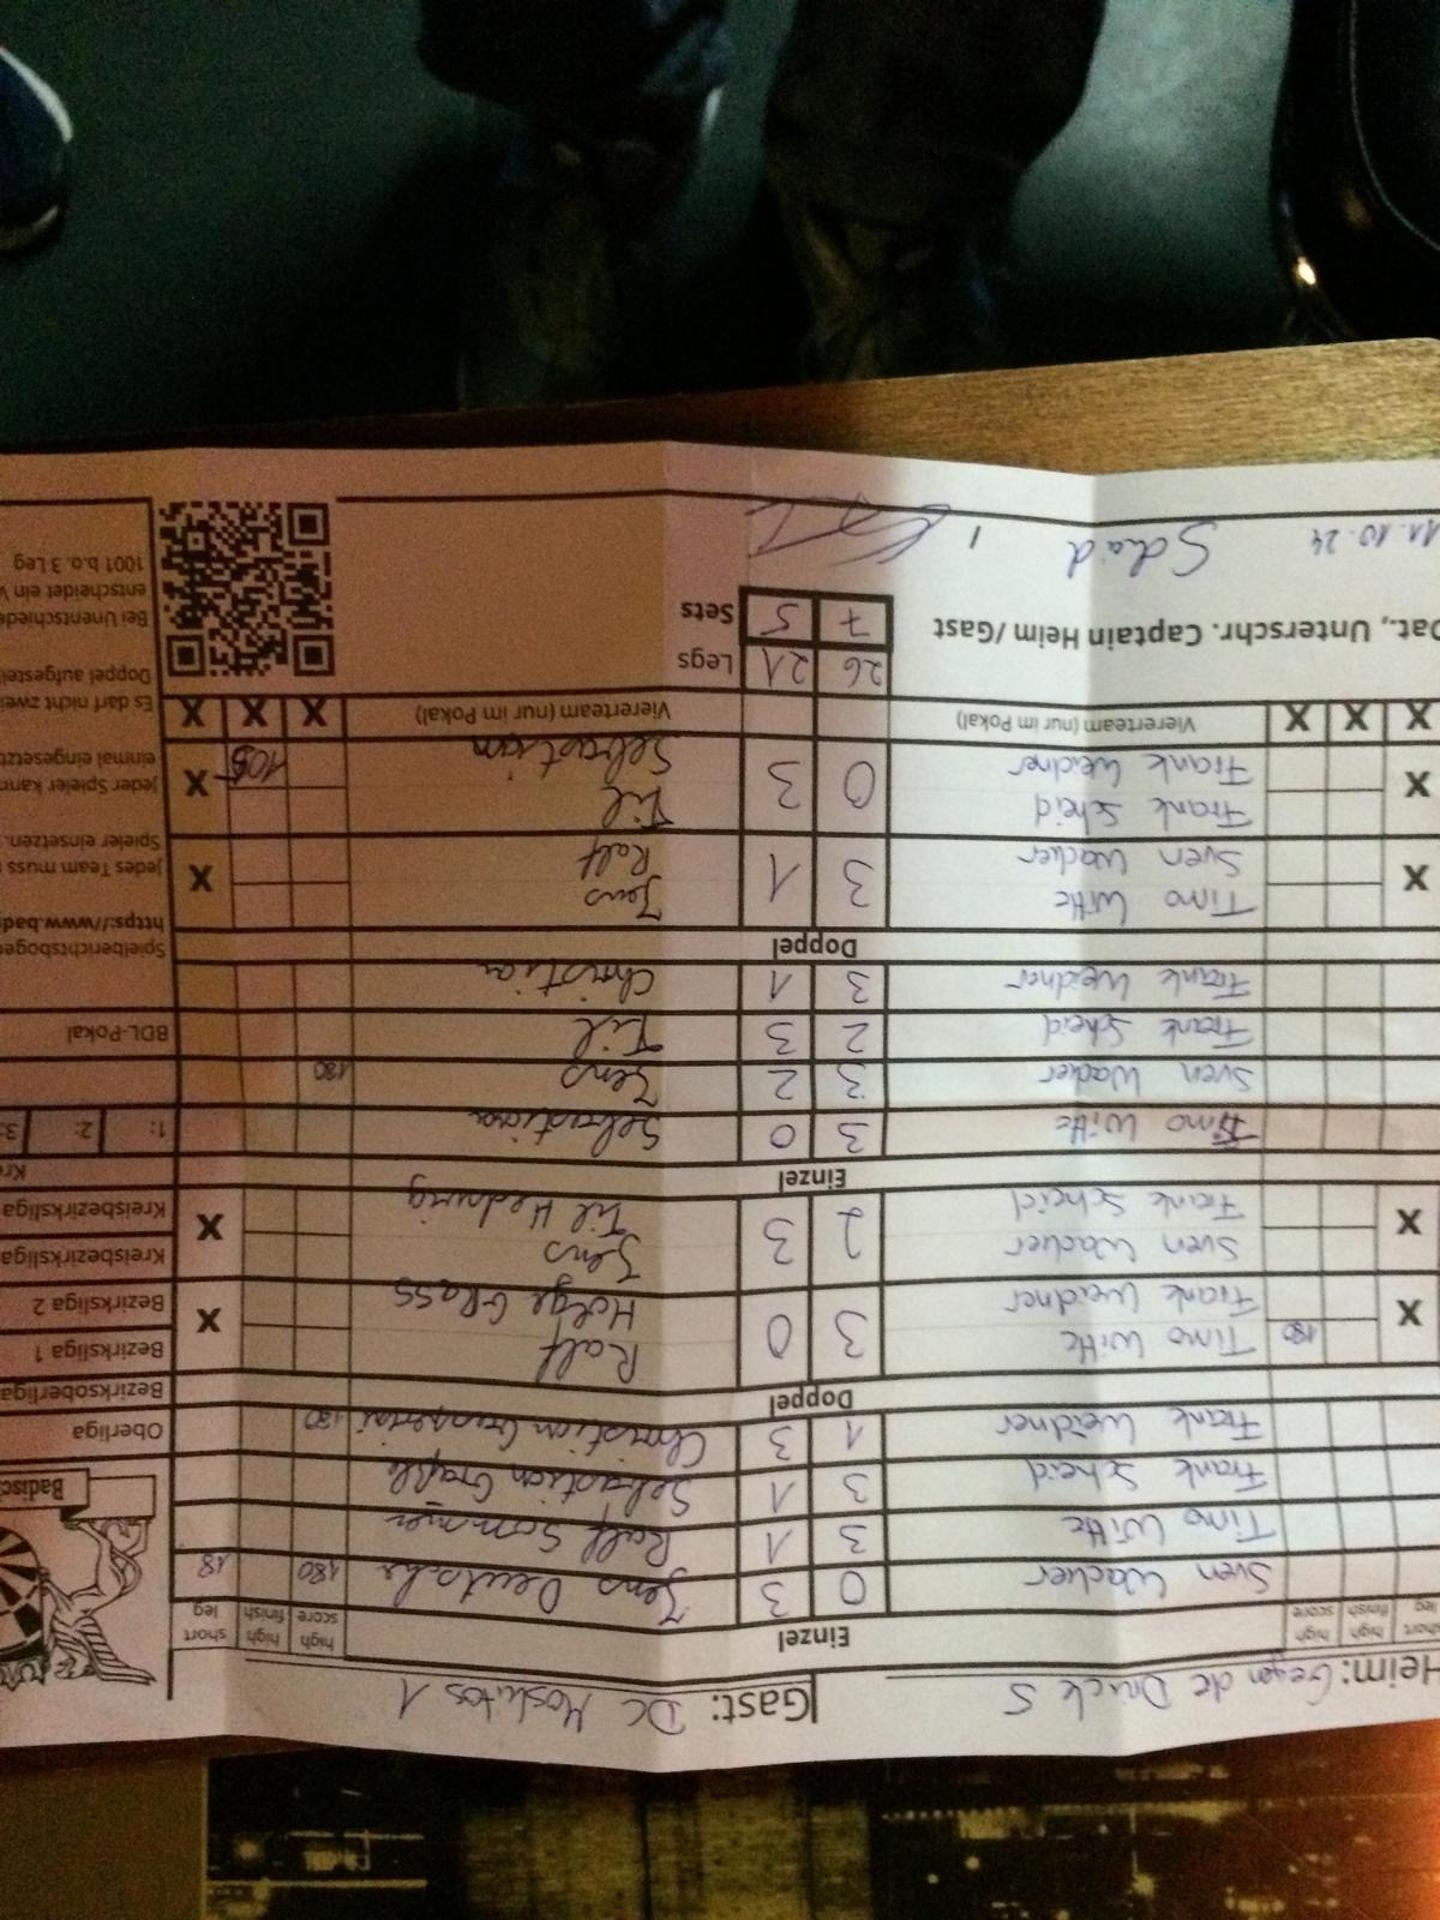 Heim: Gegen de Druck 5 Gast: DC Moskitos 1
short leg high finish high score Einzel high score high finish short leg
Sven Wacker 0 3 Jens Deutsche 180 18
Timo Witte 3 1 Ralf Sommer
Frank Scheid 3 1 Sebastian
Frank Weidner 1 3 Christian 180
Doppel
X 180 Timo Witte 3 0 Ralf X
Frank Weidner Holge GRASS
X Sven Wacker 2 3 Jens X
Frank Scheid Til Hedwig
Einzel
Timo Witte 3 0 Sebastian
Sven Wacker 3 2 Jens 180
Frank Scheid 2 3 Til
Frank Weidner 3 1 Christian
Doppel
X Timo Witte 3 1 Jens X
Sven Wacker Ralf
X Frank Scheid 0 3 Til X
Frank Weidner Sebastian 105
X X X Viererteam (nur im Pokal) Viererteam (nur im Pokal) X X X
26 21 Legs
Dat., Unterschr. Captain Heim / Gast 7 5 Sets
11.10.24 Scheid /
Badisc
Oberliga
Bezirksoberliga
Bezirksliga 1
Bezirksliga 2
Kreisbezirksliga
Kreisbezirksliga
1: 2: 3:
BDL-Pokal
Spielberichtsboge
https://www.bad
jedes Team muss
Spieler einsetzen.
jeder Spieler kann
einmal eingesetzt
Es darf nicht zwei
Doppel aufgestell
Bei Unentschiede
entscheidet ein
1001 b.o. 3 Leg